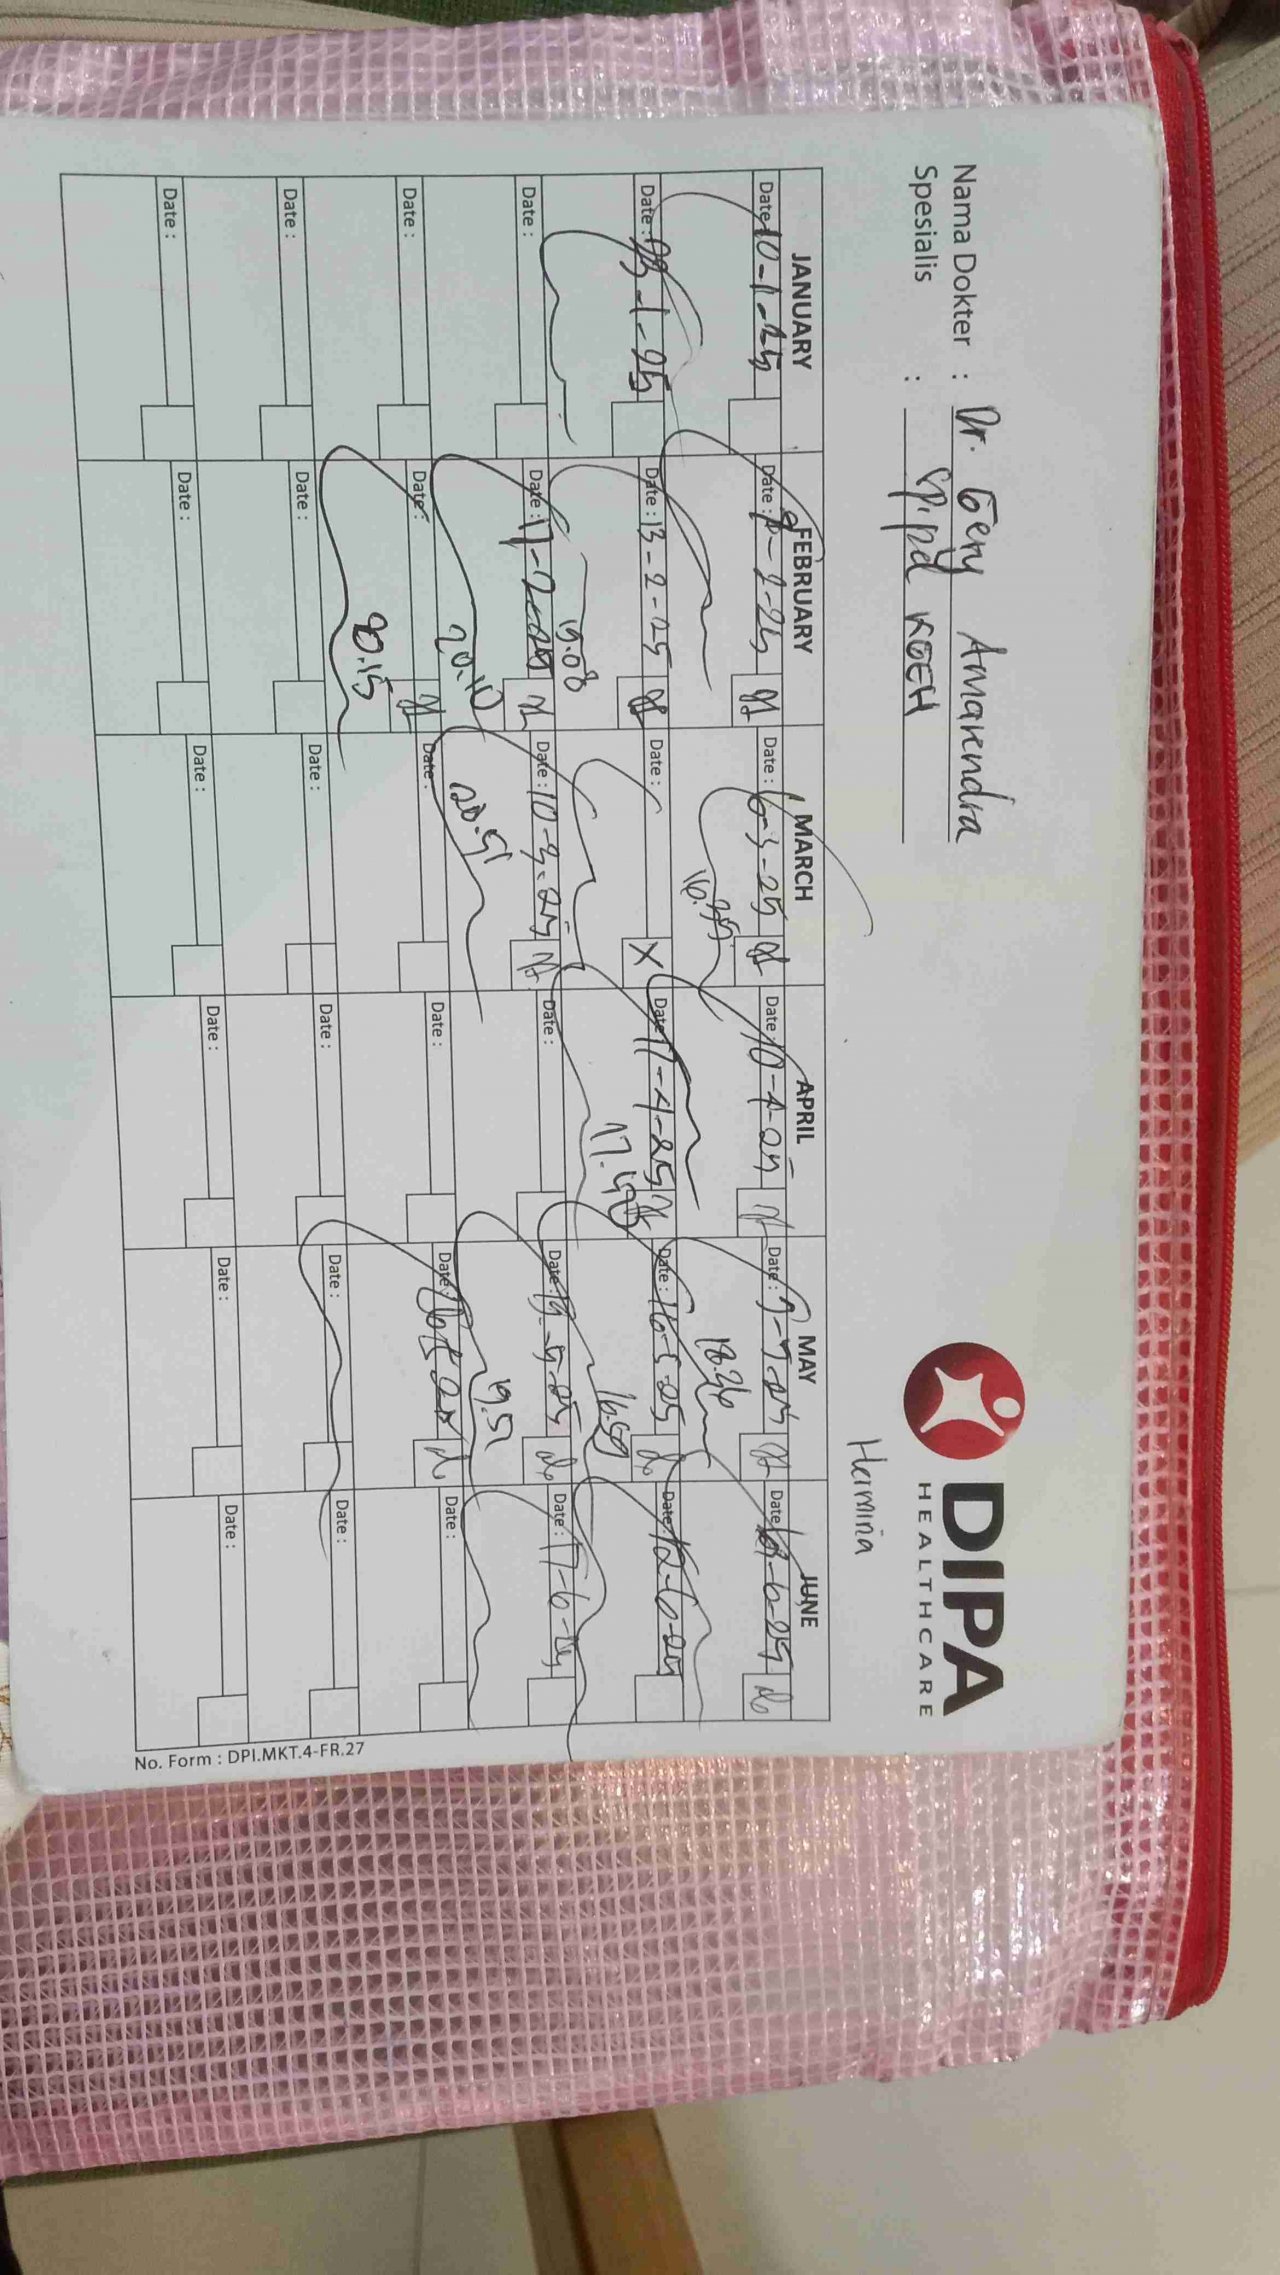 DIPA
HEALTHCARE
Nama Dokter : Dr. Geny Amarendra
Spesialis : Spipd KGEH
Hermina
JANUARY FEBRUARY MARCH APRIL MAY JUNE
Date : 10-1-25 Date : Date : 6-3-25 Date : 10-4-25 Date : Date : 6-25
16.39 18.36
Date : Date : 13-2-25 Date : X Date : 17-4-25 Date : 16-5-25 Date : 12-6-25
19.08 17.48 16.59
Date : Date : 17-2-25 Date : 10-3-25 Date : Date : 19-5-25 Date : 17-6-25
20.10 20.51 19.51
Date : Date : Date : Date : Date : Date :
20.15
Date : Date : Date : Date : Date : Date :
Date : Date : Date : Date : Date : Date :
No. Form : DPI.MKT.4-FR.27